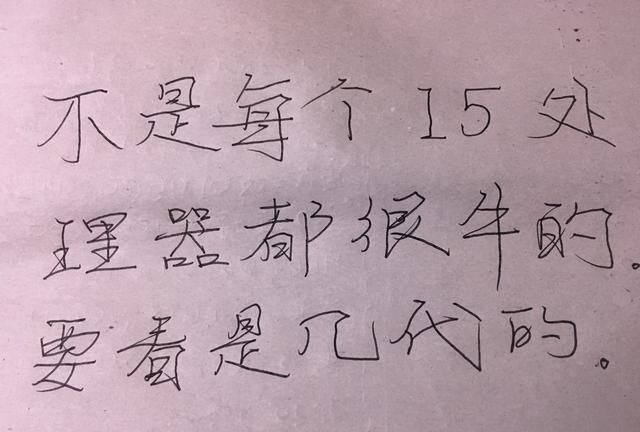 不是每个I5处
理器都很牛的.
要看是几代的。